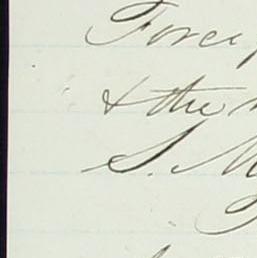 Force
& the
S. M